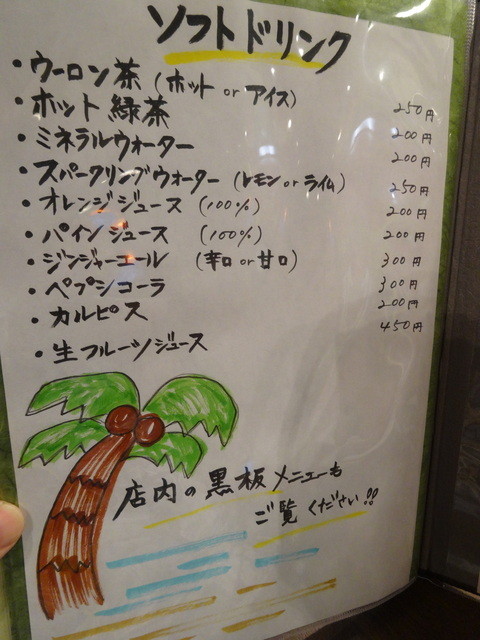 ソフトドリンク
・ウーロン茶 (ホット or アイス) 250円
・ホット緑茶 200円
・ミネラルウォーター 200円
・スパークリングウォーター (レモン or ライム) 250円
・オレンジジュース (100%) 200円
・パインジュース (100%) 200円
・ジンジャーエール (辛口 or 甘口) 300円
・ペプシコーラ 300円
・カルピス 200円
・生フルーツジュース 450円
店内の黒板メニューも
ご覧ください!!